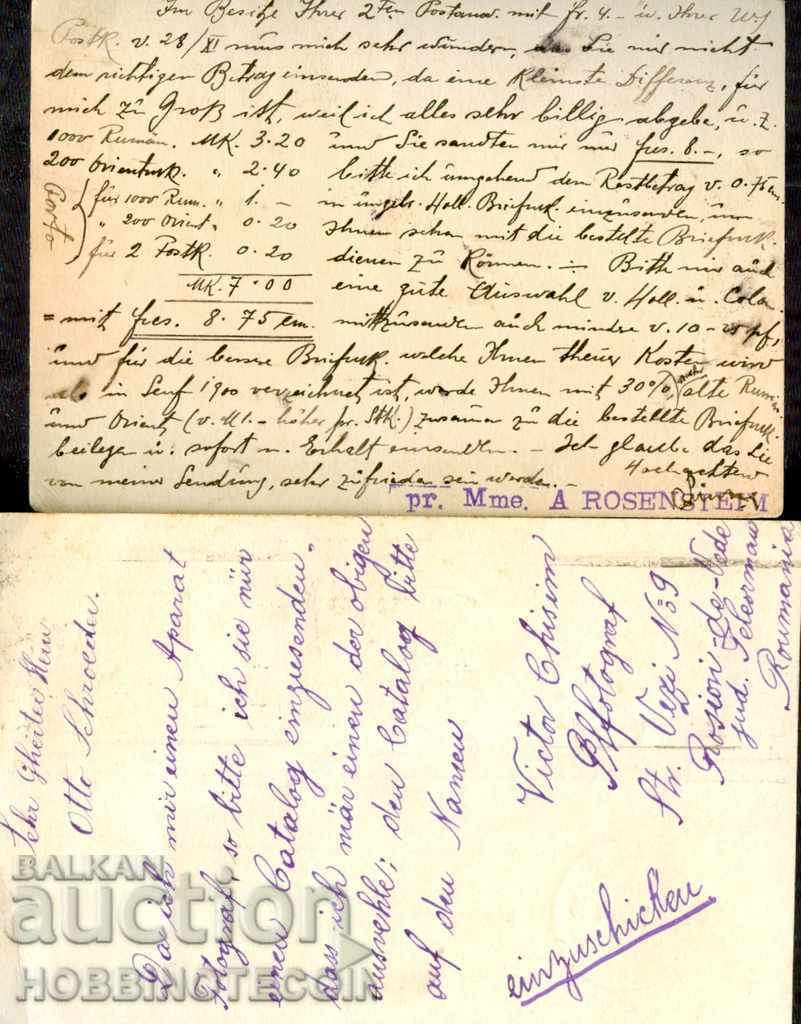 Im Besitze Ihrer 2ten Postanw. mit fr. 4.- u. Ihrer
Postk. v. 28/XI mus mich sehr wundern, das Sie mir nicht
dem richtigen Betrag einsenden, da eine Kleinste Differenz, für
mich zu Groß ist, weil ich alles sehr billig abgebe, u. z.
1000 Rumän. MK. 3.20 und Sie sandten mir nur frcs. 8.-, so
200 Orientmk. " 2.40 bitte ich umgehend dem Restbetrag v. 0.75 cm.
Porto
für 1000 Rum. " 1.- in ungebr. Holl. Briefmk. einzusenden, um
" 200 Orient " 0.20 Ihnen schon mit die bestelte Briefmk.
für 2 Postk. 0.20 dienen zu Können. — Bitte mir auch
MK. 7.00 eine gute Auswahl v. Holl. u. Colon.
= mit frcs. 8.75 cm. mitzusenden auch mindre v. 10 - pf,
und für die bessere Briefmk. welche Ihnen theuer Kosten wird
als in Senf 1900 verzeichnet ist, werde Ihnen mit 30% mehr alte Rumän.
und Orient (v. M 1.- höher pr. Stk.) zusamen zu die bestellte Briefmk.
beilegen u. sofort n. Erhalt einsenden. - Ich glaube das Sie
von meiner Sendung, sehr zufrieden sein werden. -
pr. Mme. A ROSENSTEIN
Sehr Gherter Herr
Otto Schroeder.
Da ich mir einen Aparat
Fotograf, so bitte ich sie nür
einen Catalog einzusenden.
dass ich mär einen der obigen
ausvehle; den Catalog bitte
auf den Namen
Victor Chisim
Phfotograf
Str. Vezi No 9
Rosiori-de-Vede
jud. Teleorman
Roumania
einzuschicken
BALKAN
auction
HOBBINOTECOIN